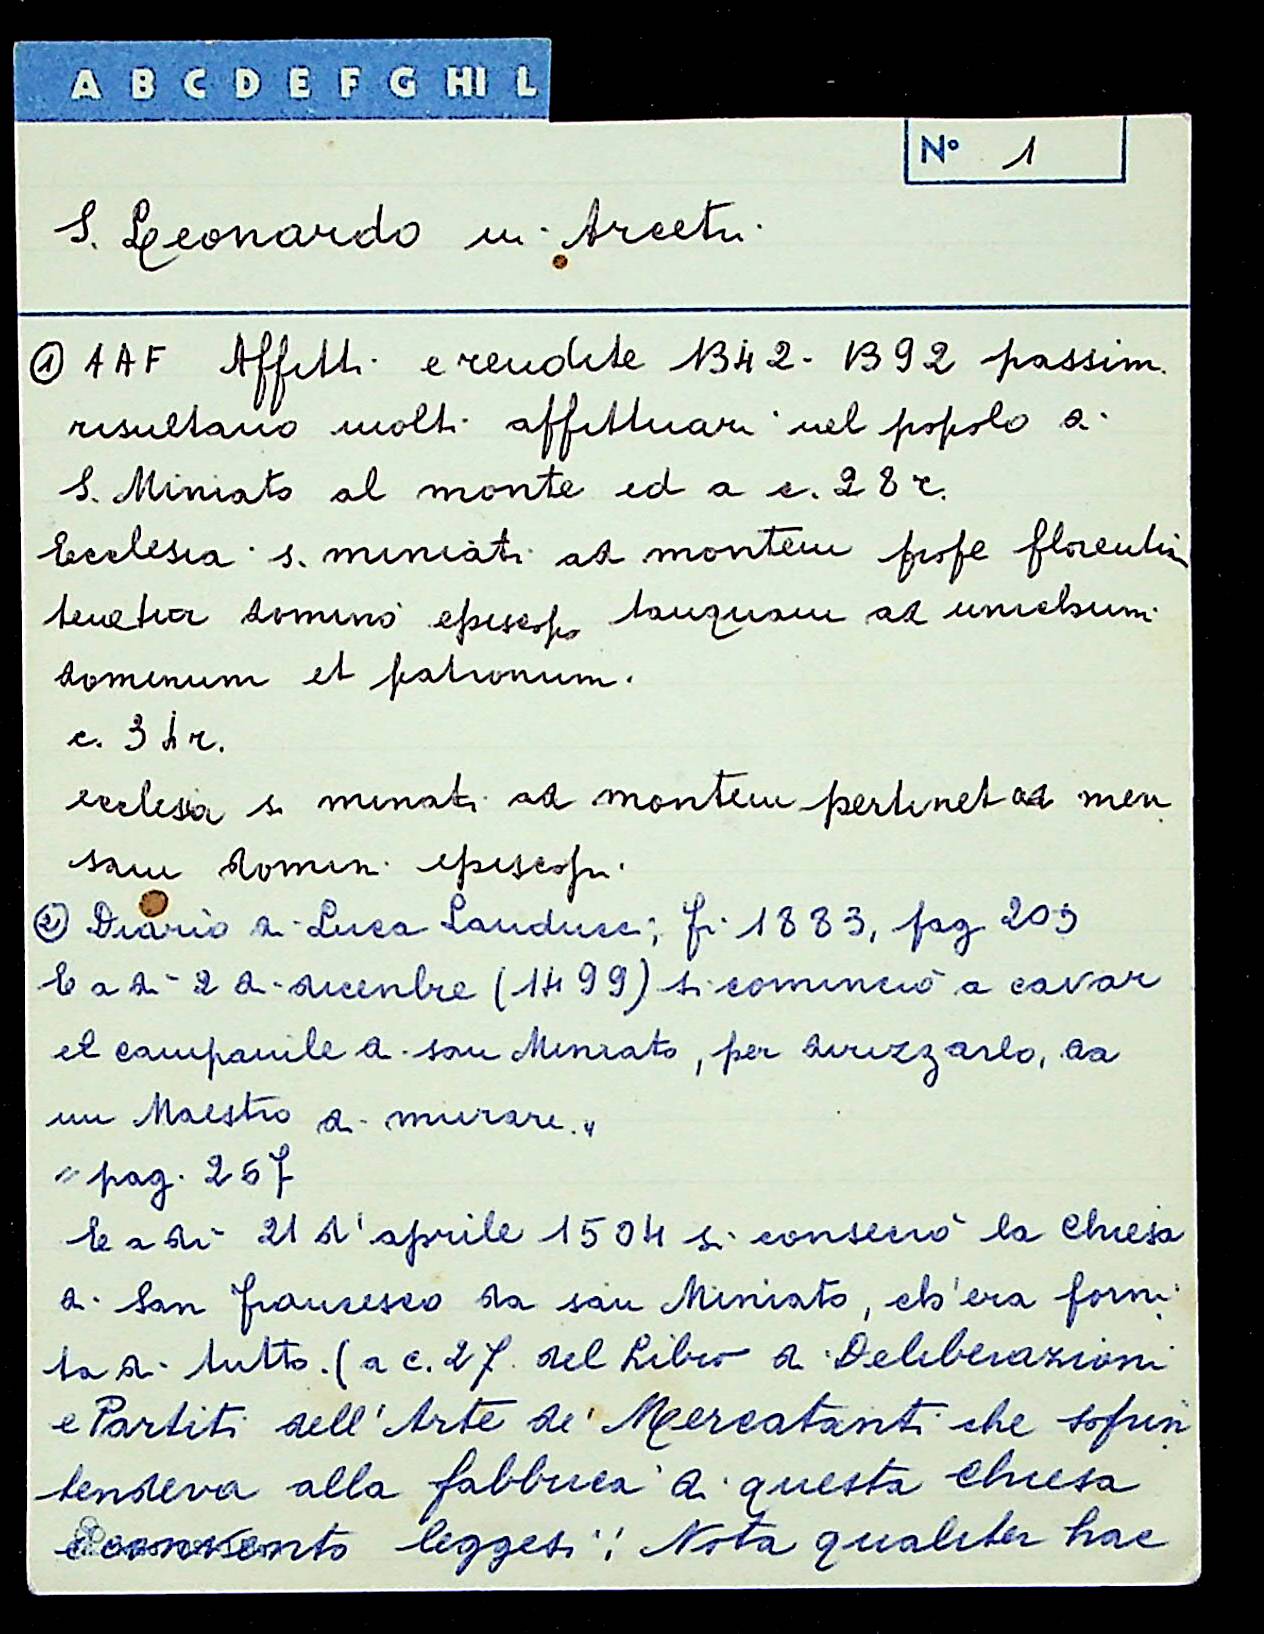 A B C D E F G HI L
N° 1
S. Leonardo in Arcetri
① AAF Affitti e rendite 1342-1392 passim.
risultano molti affittuari nel popolo di
S. Miniato al monte ed a c. 28 r.
Ecclesia s. miniati ad montem prope florentia
tenetur domino episcopo tanquam ad unichum
dominum et patronum.
c. 34 r.
ecclesia s. minati ad montem pertinet ad men
sam domini episcopi.
② Diario di Luca Landucci; Fi 1883, pag 203
E a dì 2 di dicenbre (1499) si cominciò a cavar
el campanile di san Miniato, per dirizzarlo, da
un Maestro di murare."
" pag. 267
E a dì 21 d'aprile 1504 si consecrò la chiesa
di San Francesco da san Miniato, ch'era forni
ta di tutto. (a c. 27. del Libro di Deliberazioni
e Partiti dell'Arte de' Mercatanti che soprin
tendeva alla fabbrica di questa chiesa
e convento leggesi: Nota qualiter hac